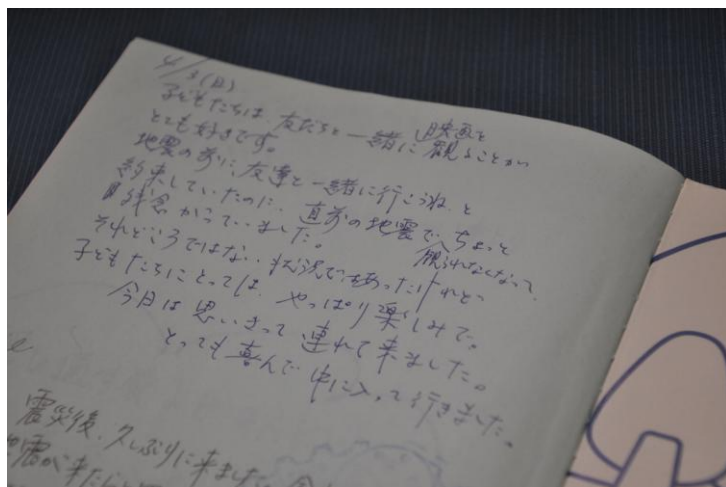 4/3(日)
子どもたちは、友だちと一緒に映画を
観ることが
とても好きです。
地震の前に、友達と一緒に行こうね、と
約束していたのに、直前の地震で、ちょっと
観られなくなって、
残念がっていました。
それどころではない状況でもあったけれど、
子どもたちにとっては、やっぱり楽しみで。
今日は思いきって連れて来ました。
とっても喜んで中に入って行きました。
震災後、久しぶりに来ました。